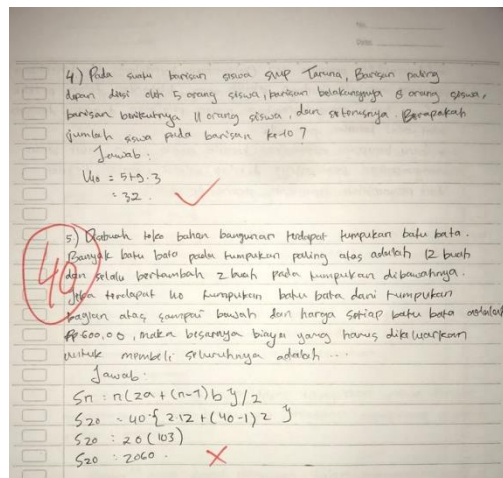 No.
Date
4) Pada suatu barisan siswa SMP Taruna, Barisan paling
depan diisi oleh 5 orang siswa, barisan belakangnya 8 orang siswa,
barisan berikutnya 11 orang siswa, dan seterusnya. Berapakah
jumlah siswa pada barisan ke-10?
Jawab:
U10 = 5+9.3
= 32
5) Disebuah toko bahan bangunan terdapat tumpukan batu bata.
Banyak batu bata pada tumpukan paling atas adalah 12 buah
dan selalu bertambah 2 buah pada tumpukan dibawahnya.
Jika terdapat 40 tumpukan batu bata dari tumpukan
bagian atas sampai bawah dan harga setiap batu bata adalah
Rp 600,00, maka besarnya biaya yang harus dikeluarkan
untuk membeli seluruhnya adalah ...
Jawab:
Sn : n(2a + (n-1)b}/2
S20 = 40{2.12 + (40-1)2 }
S20 : 20(103)
S20 : 2060.
40